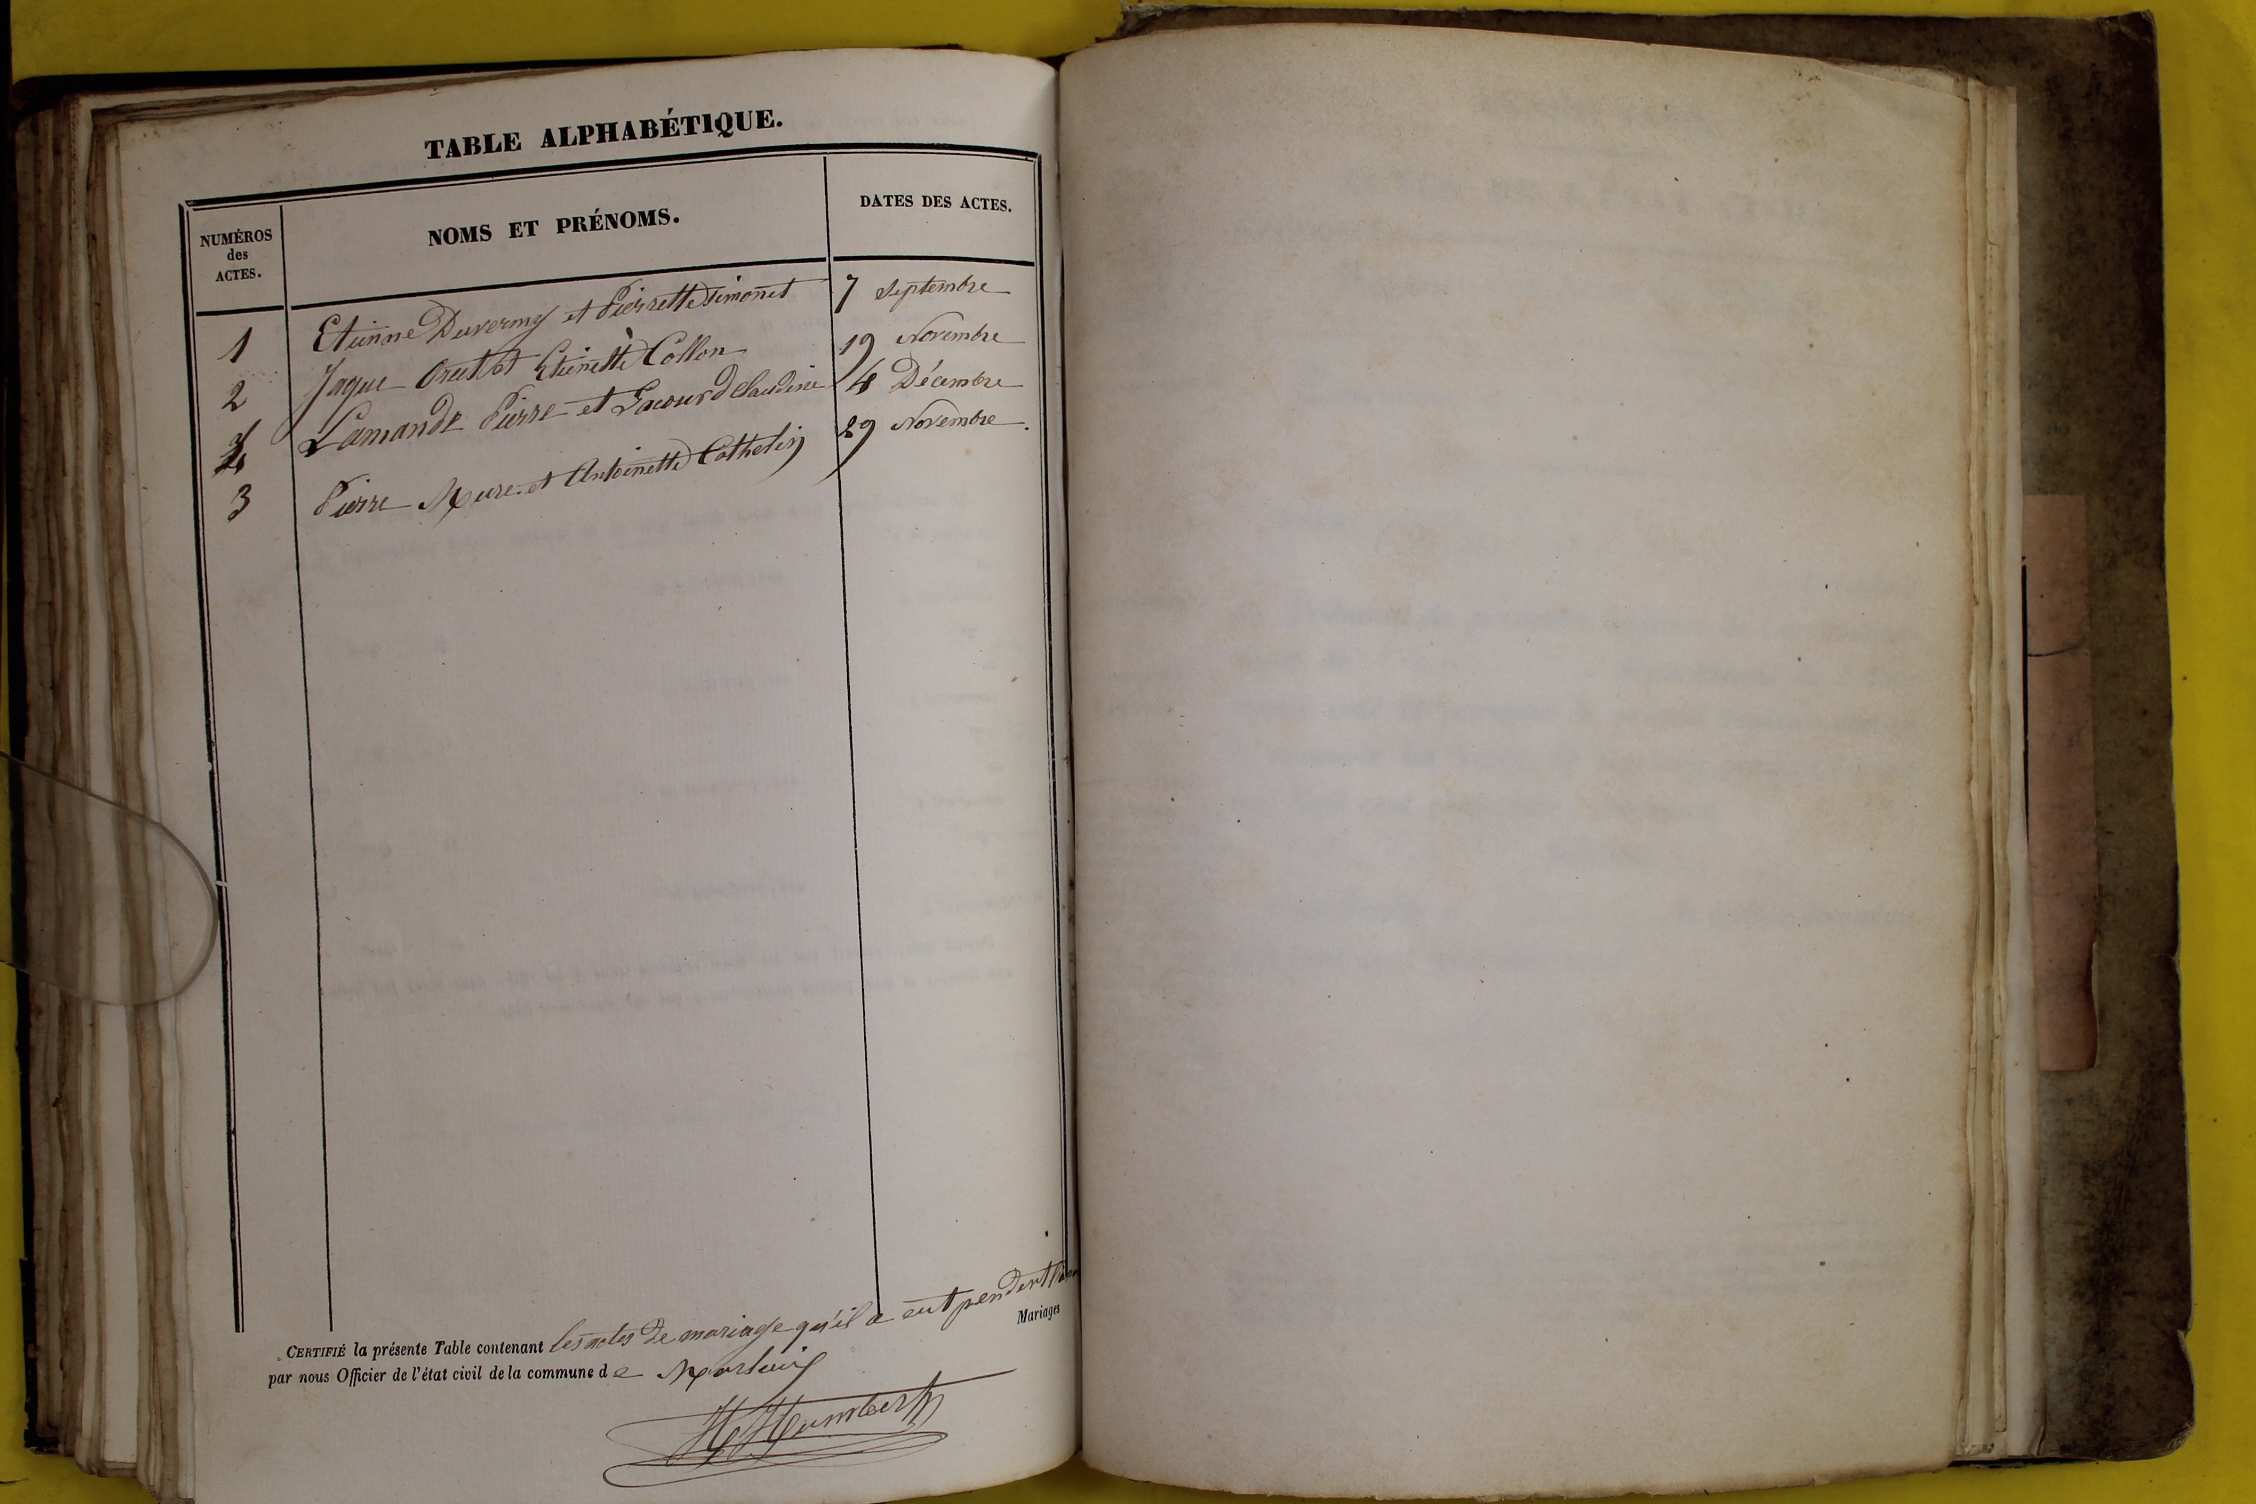 TABLE ALPHABÉTIQUE.
NUMÉROS des ACTES.
NOMS ET PRÉNOMS.
DATES DES ACTES.
1 Etienne Duverny et Pierrette Simonet 7 Septembre
2 Jaque et Etienette Collon 19 Novembre
4 Lamande Pierre et Lacour Claudine 4 Décembre
3 Pierre Mure et Antoinette Cathelin 29 Novembre.
CERTIFIÉ la présente Table contenant les actes de mariage qu'il a eut pendent Mariages
par nous Officier de l'état civil de la commune de
H Humbert